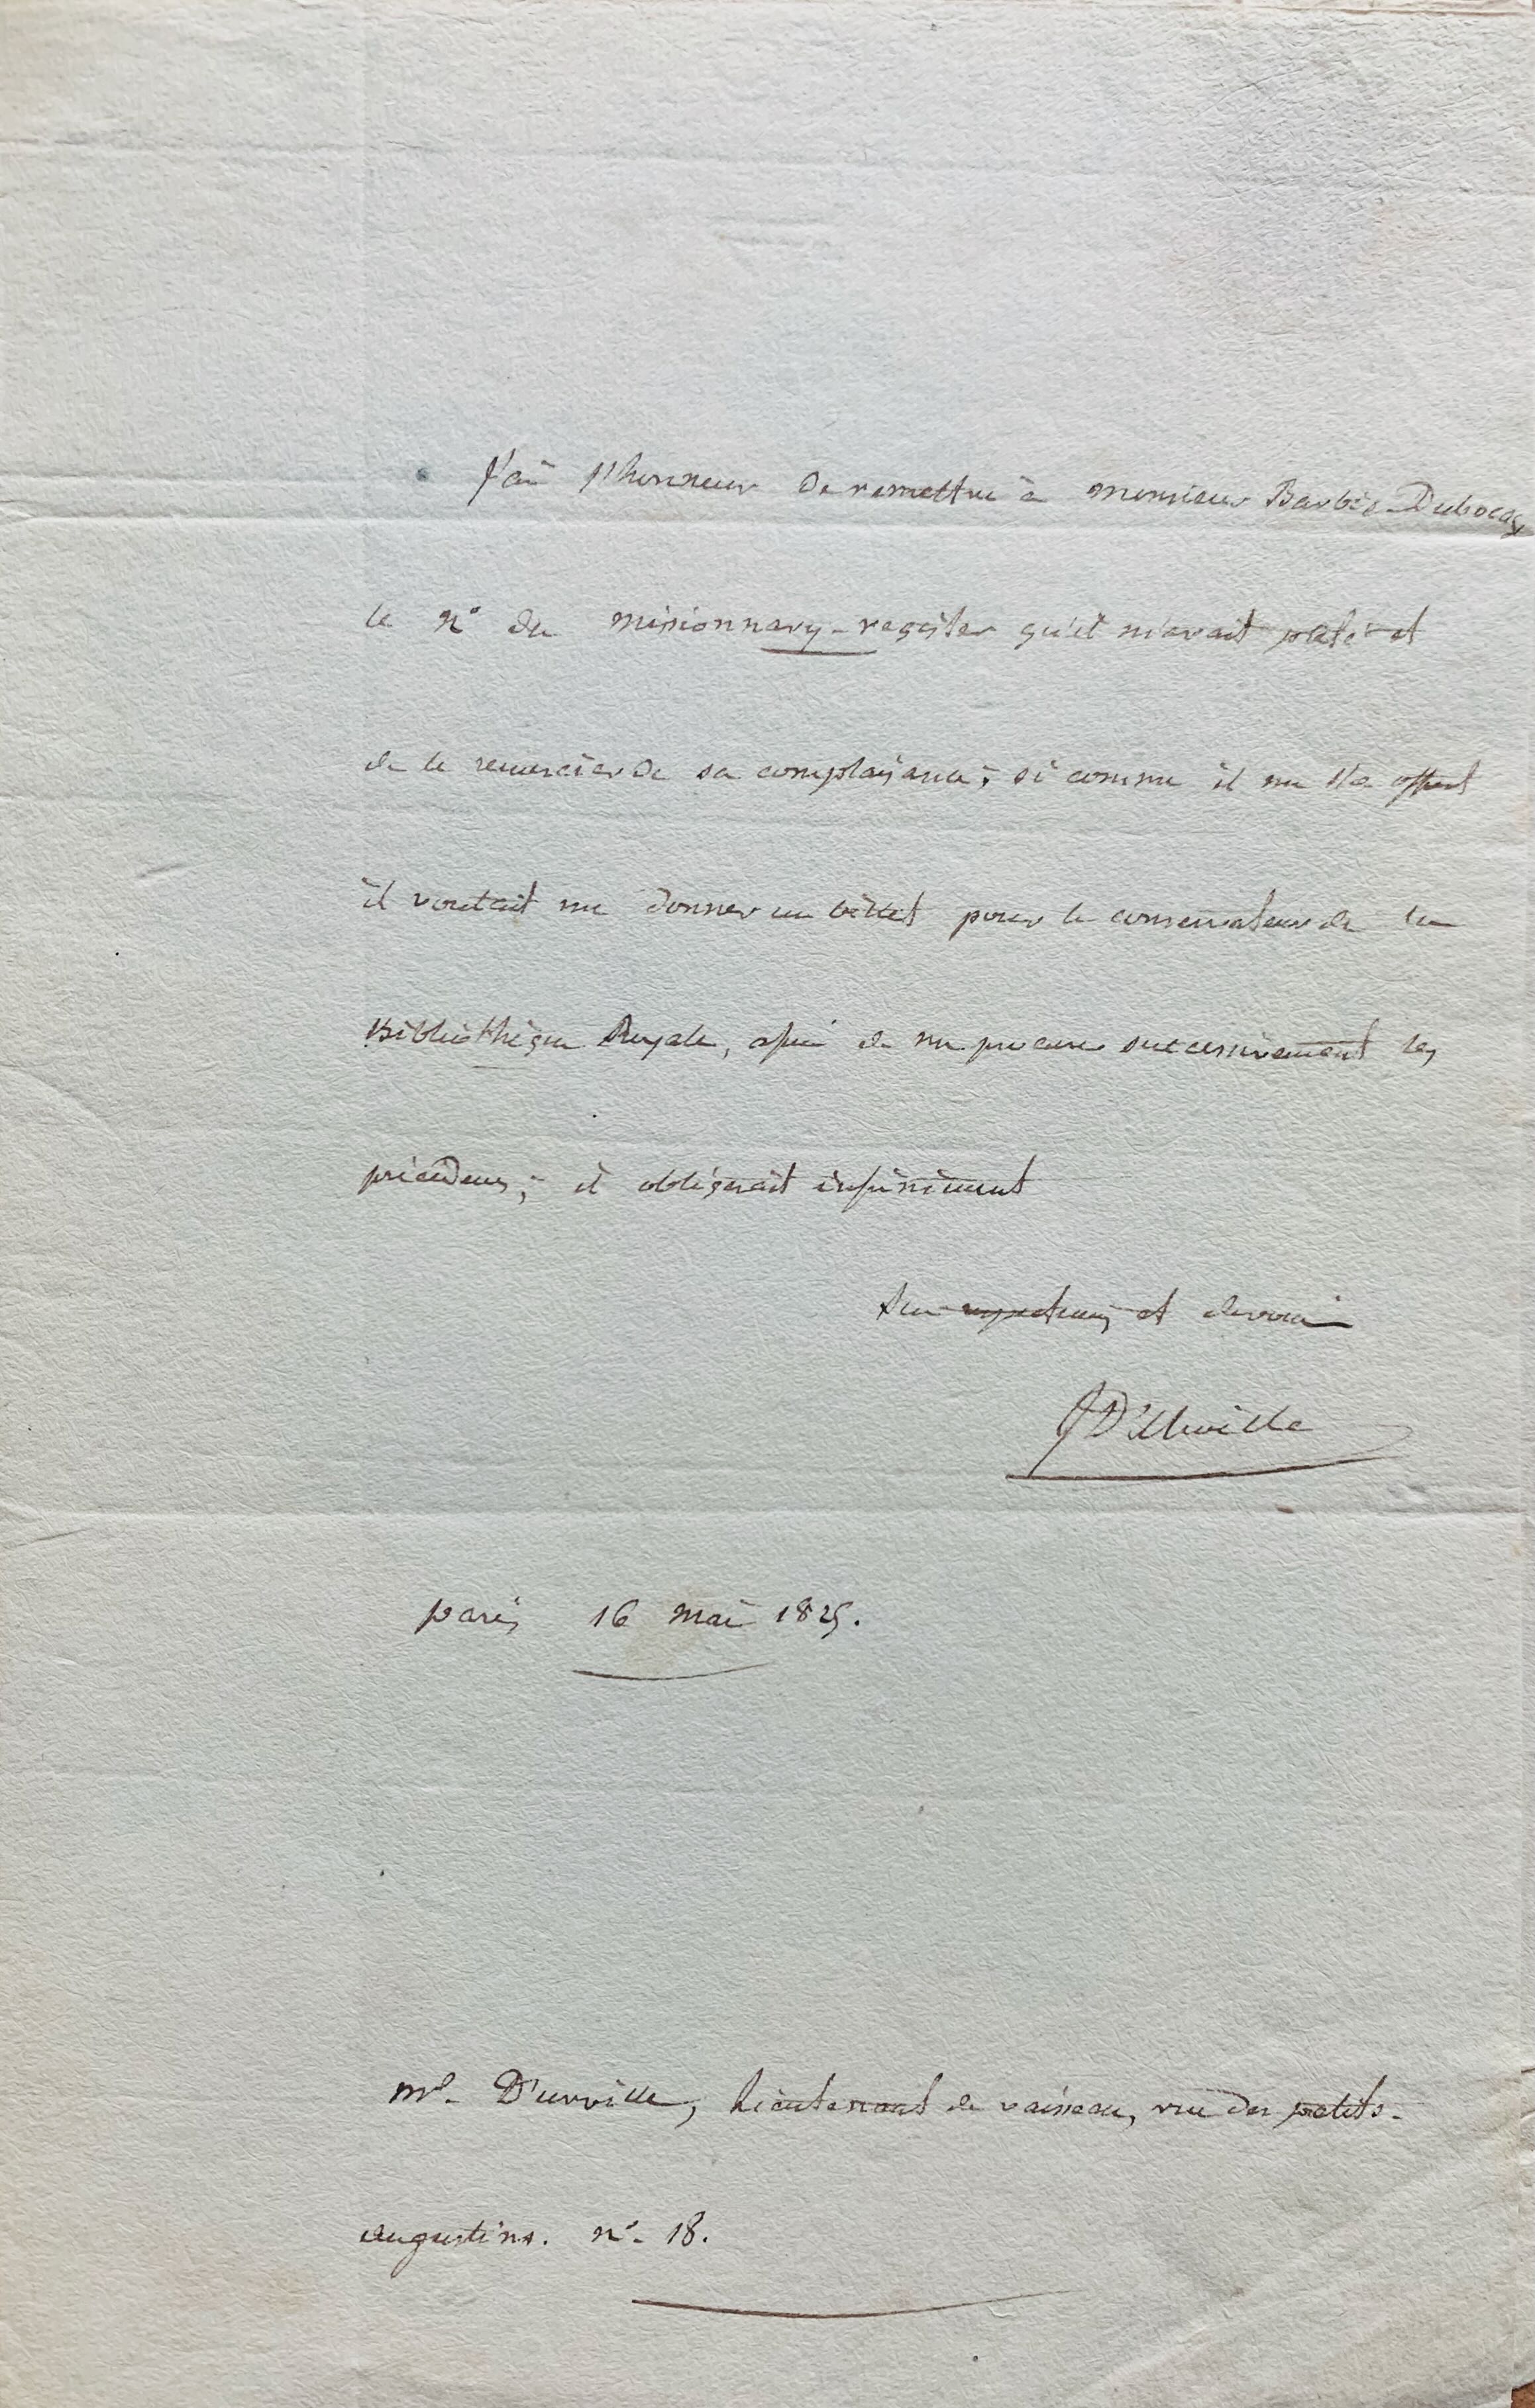 J'ai l'honneur de remettre à monsieur Barbié-Dubocag
le n° du missionnary-register qu'il m'avait prêté et
de le remercier de sa complaisance; si comme il me l'a offert
il voulait me donner un billet pour le conservateur de la
Bibliothèque Royale, afin de me procurer successivement les
précédens; il obligerait infiniment
son respectueux et dévoué
J D'Urville
paris 16 mai 1825.
mr. D'urville, lieutenant de vaisseau, rue des petits-
augustins. n°- 18.